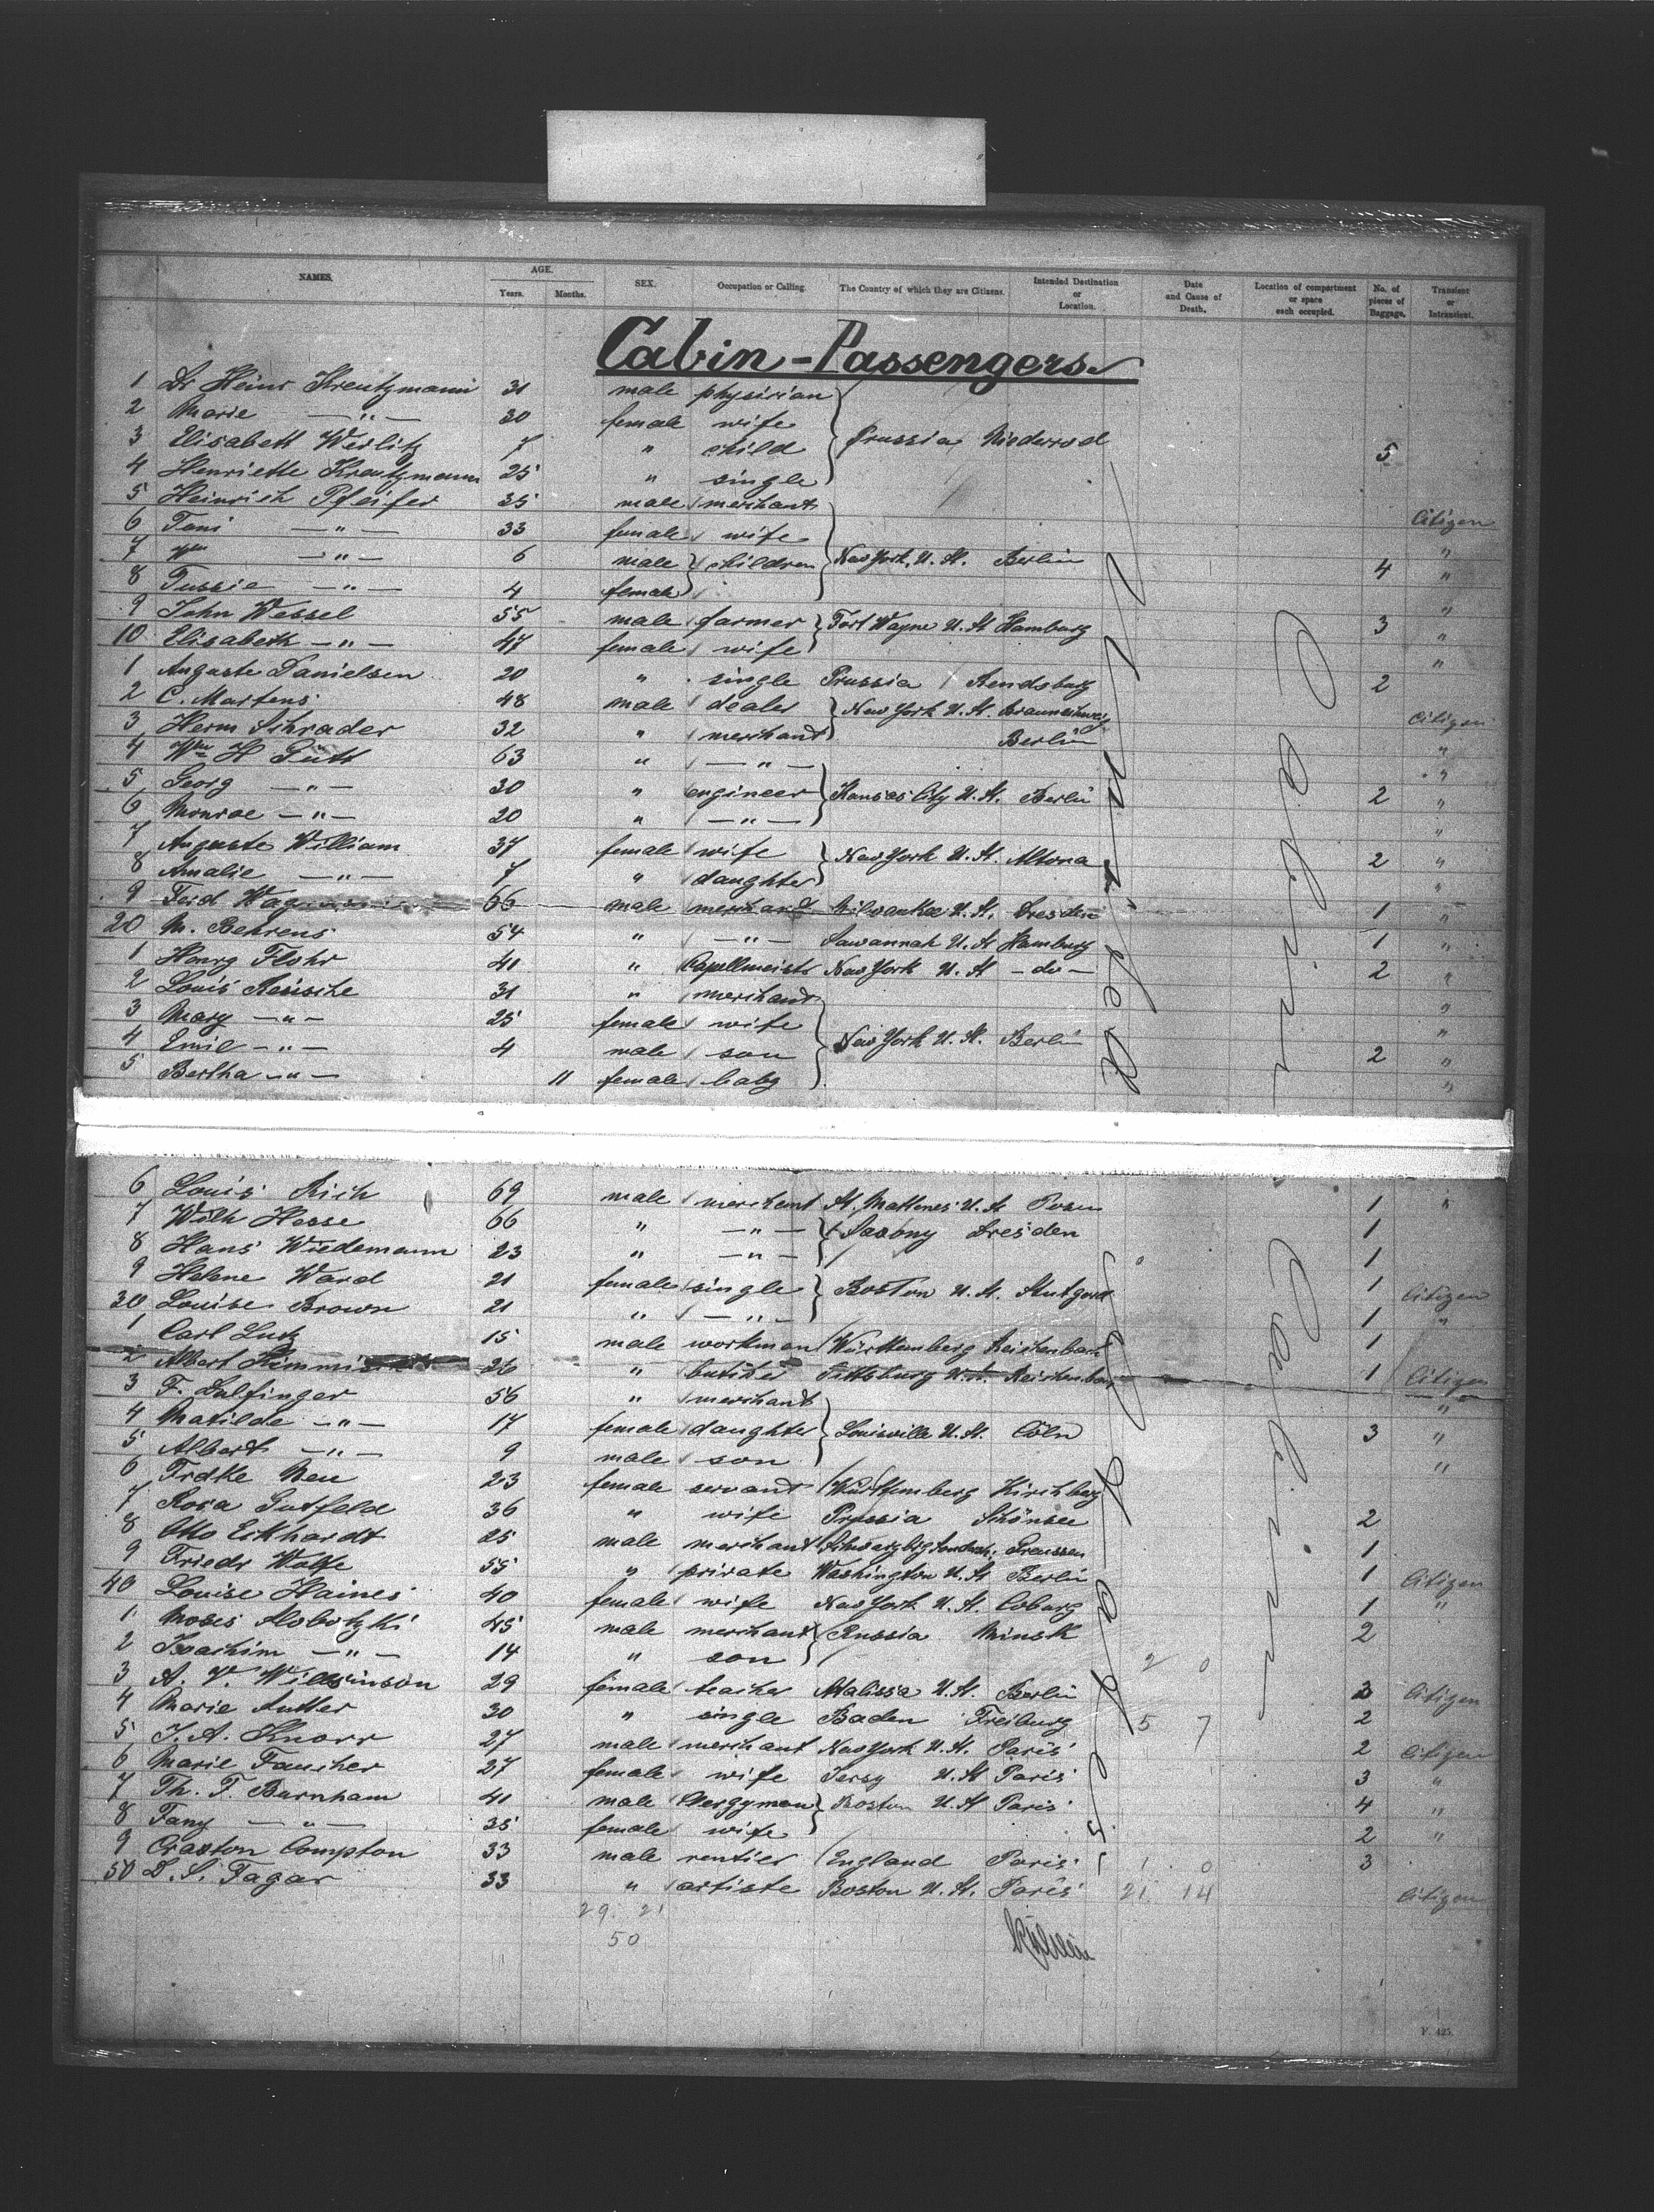 NAMES. AGE. SEX. Occupation or Calling. The Country of which they are Citizens. Intended Destination or Location. Date and Cause of Death. Location of compartment or space each occupied. No. of pieces of Baggage. Transient or Intransient.
Years. Months.
Cabin-Passengers
1 Dr Heinr Kreutzmann 31 male physician
2 Marie —"— 30 female wife
3 Elisabeth 7 " child Prussia 5
4 Henriette Kreutzmann 25 " single
5 Heinrich Pfeifer 35 male merchant Citizen
6 Toni —"— 33 female wife "
7 Wm —"— 6 male children New York, U. St. Berlin 4 "
8 Tussie —"— 4 female "
9 John Wessel 55 male farmer Fort Wayne U. St Hamburg 3 "
10 Elisabeth —"— 47 female wife "
1 Auguste Danielsen 20 " single Prussia Rendsburg 2
2 C. Martens 48 male dealer New York U. St. Braunschweig Citizen
3 Herm Schrader 32 " merchant Berlin "
4 Wm H 63 " —"— "
5 Georg —"— 30 " engineer Kansas City U. St. Berlin 2 "
6 Monroe —"— 20 " —"— "
7 Auguste William 37 female wife New York U. St. Altona 2 "
8 Amalie —"— 7 " daughter "
9 Ferd 66 male merchand Milwaukee U. St. Dresden 1 "
20 M. Behrens 54 " —"— Sawannah U. St Hamburg 1 "
1 Flohr 41 " Capellmeistr New York U. St —do— 2 "
2 Louis 31 " merchant "
3 Mary —"— 25 female wife "
4 Emil —"— 4 male son New York U. St. Berlin 2 "
5 Bertha —"— 11 female baby "
6 Louis Rich 69 male merchant St. U. St Posen 1 "
7 Wilh Hesse 66 " —"— Saxony Dresden 1
8 Hans Wiedemann 23 " —"— 1
9 Helene Ward 21 female single Boston U. St. Stutgard 1 Citizen
30 Louise Brown 21 " —"— 1 "
1 Carl Lutz 15 male workman Württemberg Reichenbach 1
2 Albert 26 " butcher Pittsburg U. St. 1 Citizen
3 F. 56 " merchant "
4 Matilde —"— 17 female daughter Louisville U. St. Cöln 3 "
5 Albert —"— 9 male son "
6 Frdke Neu 23 female servant Württemberg Kirchberg
7 Rosa Gutfeld 36 " wife Prussia Schönsee 2
8 Otto Eckhardt 25 male merchant Preussen 1
9 Friedr 55 " private Washington U. St Berlin 1 Citizen
40 Louise Haines 40 female wife New York U. St. Coburg 1 "
1 Moses 45 male merchant Russia Minsk 2
2 Joachim —"— 14 " son 2 0
3 A. V. Wilkinson 29 female teacher U. St. Berlin 3 Citizen
4 Marie 30 " single Baden Freiburg 5 7 2
5 J. A. Knorr 27 male merchant New York U. St. Paris 2 Citizen
6 Marie Faucher 27 female wife Jersy U. St Paris 3 "
7 Th. F. Burnham 41 male Clergyman Boston U. St Paris 4 "
8 Fany —"— 35 female wife 2 "
9 Compton 33 male rentier England Paris 1 0 3
50 D. S. Fagar 33 " artiste Boston U. St. Paris 21 14 Citizen
29. 21
50
Cabin
Cabin